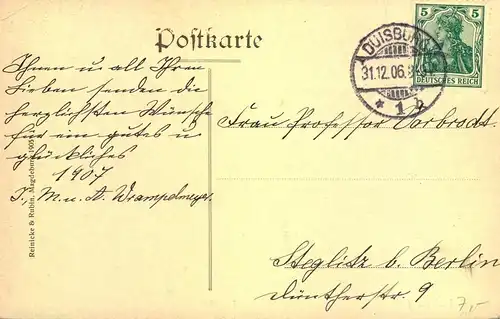 Postkarte
Ihnen u all Ihren
Lieben senden die
herzlichsten Wünsche
für ein gutes u
glückliches
1907
J., M. u. A. Wrampelmeyer.
Reinicke & Rubin, Magdeburg 1905
DUISBURG
31.12.06.
* 1 b
5 5
DEUTSCHES REICH
Frau Professor Vorbrodt
Steglitz b. Berlin
Düntherstr. 9
7,-